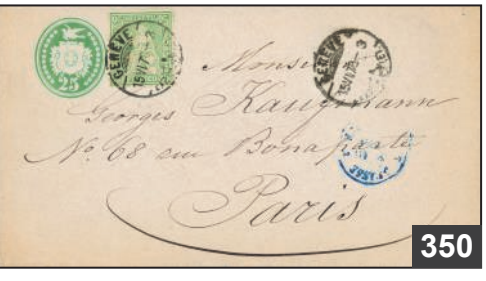 25
GENEVE
GENEVE
Monsieur
Georges Kaufmann
No. 68 rue Bonaparte
Paris
350